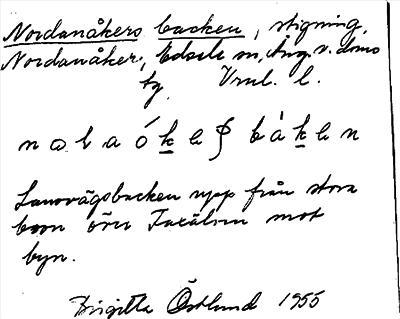 Nordanåkers backen, stigning,
Nordanåker, Edsele sn, Ång. v. dms
tg. Vrml. l.
Lanvägsbacken upp från stora
bron över Faxälven mot
byn.
Birgitta Östlund 1955